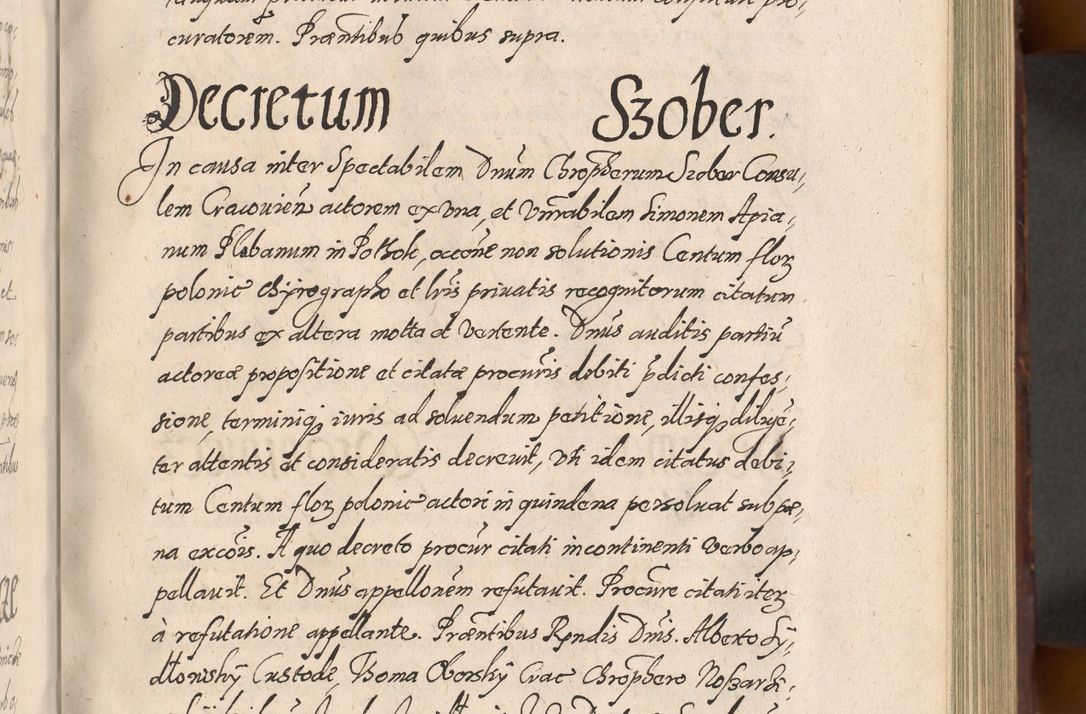 curatorem. Præntibus quibus supra.
Decretum Szober.
In causa inter Spectabilem Dnum Chrophorum Szober Consu,
lem Cracouien actorem ex vna, et Vnrabilem Simonem Apia,
num Plebanum in Pothok, accōne non solutionis Centum flor
polonic chyrographo et lris priuatis recognitorum citatum
partibus ex altera mota et vertente. Dnus auditis partiū
actoreæ propositione et citatæ procuris debiti pdicti confes,
sione, terminiq iuris ad soluendum petitione, illisq diligē,
ter attentis et consideratis decreuit, vti idem citatus debi,
tum Centum flor polonic actori in quindena persoluat sub pæ,
na excōis. A quo decreto procur citati incontinenti verbo ap,
pellauit. Et Dnus appellonem refutauit. Procure citati iter
à refutatione appellante. Præntibus Rndis Dnis. Alberto
dłowsky Custode, Thoma Oborsky Crac Chrophero